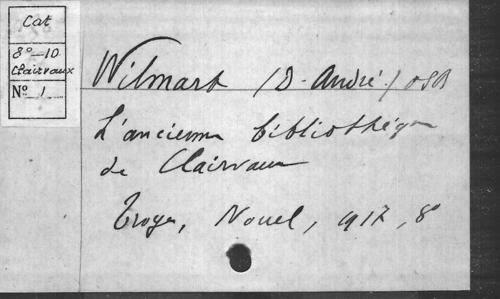 Cat
8°-10
Clairvaux
N° 1
Wilmart (D. André) OSB
L'ancienne bibliothèque
de Clairvaux
Troyes, Nouel, 1917, 8°